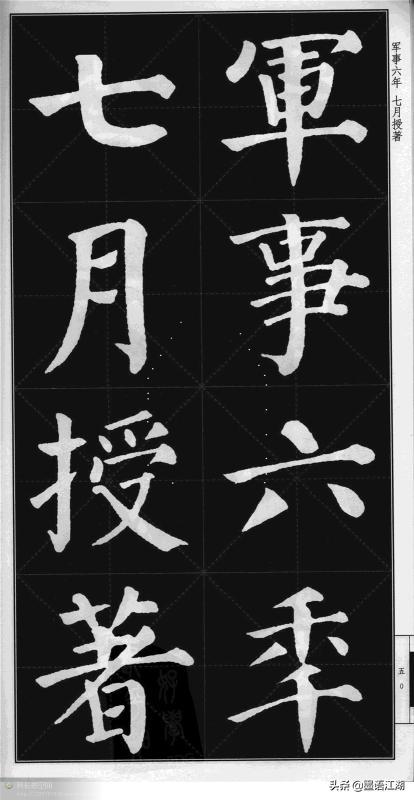 軍事六秊
七月授著
军事六年 七月授著
五〇
头条 @墨语江湖